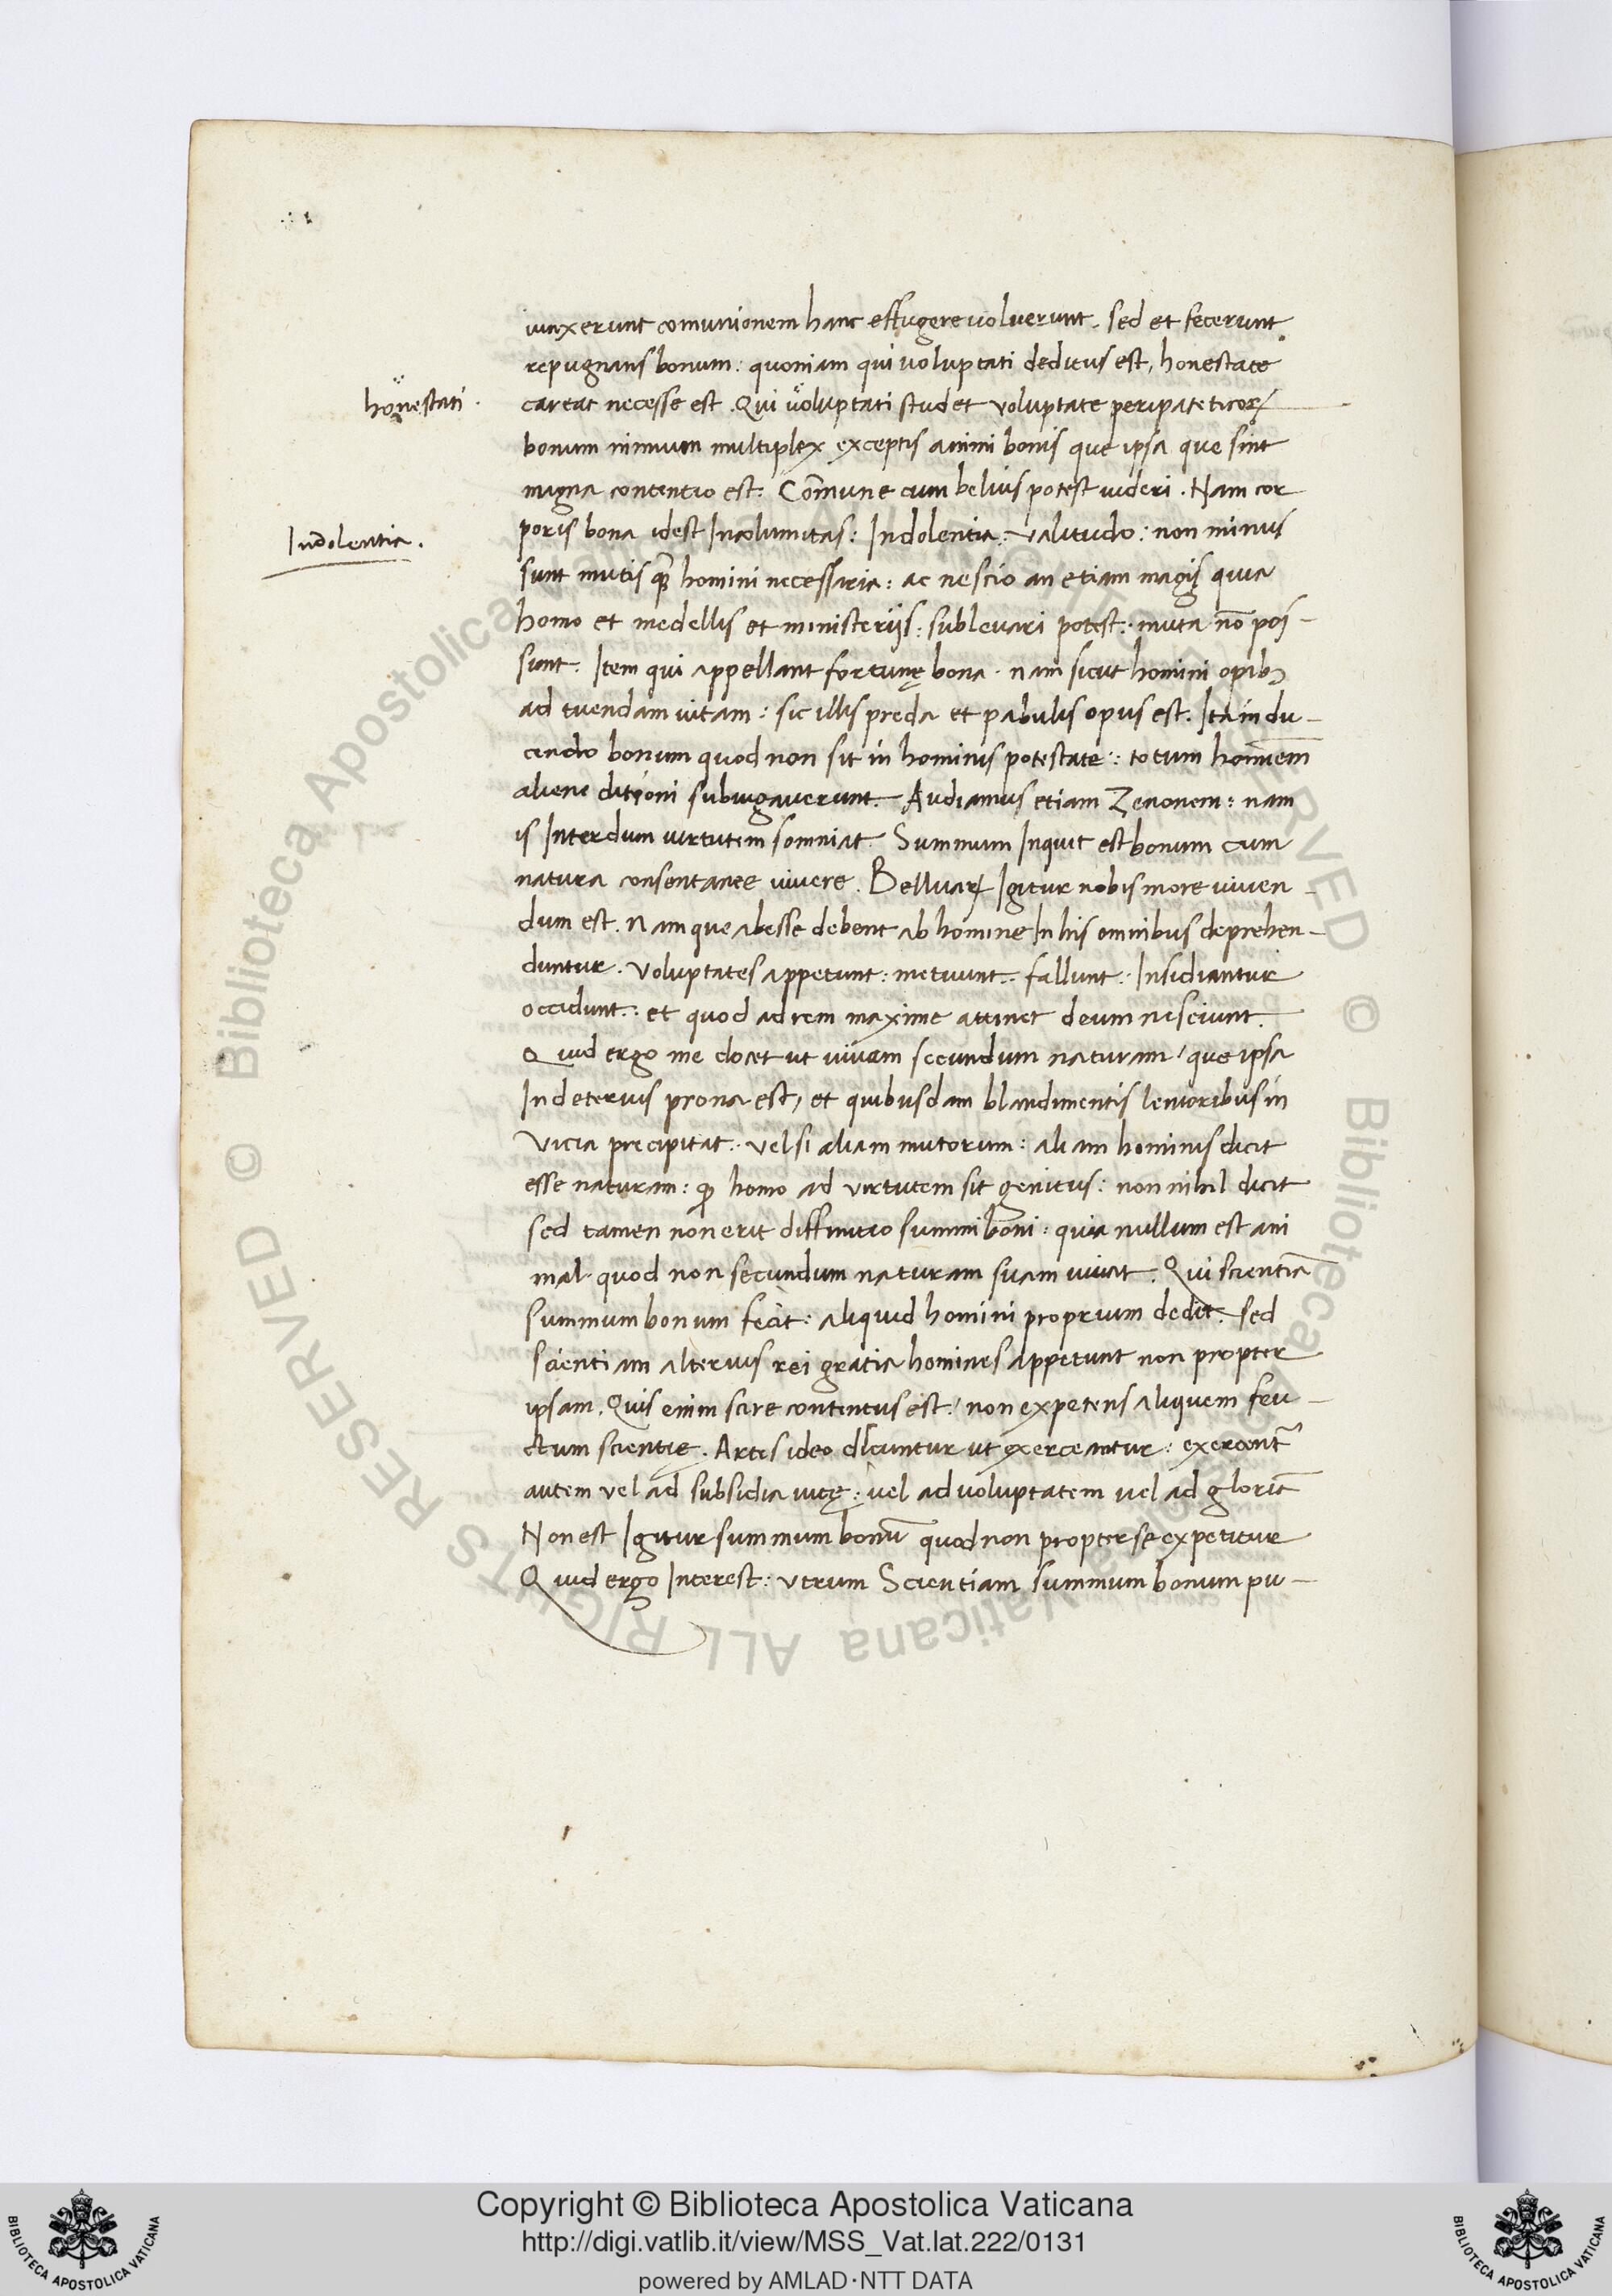 iunxerunt comunionem hanc effugere uoluerunt. sed et fecerunt
repugnans bonum: quoniam qui uoluptati deditus est, honestate
honestati.
careat necesse est. Qui uoluptati studet voluptate peripateticoꝝ
bonum nimium multiplex exceptis animi bonis que ipsa que sint
magna contentio est. Com̄une cum beluis potest uideri. Nam cor
Indolentia.
poris bona idest Incolumitas: Indolentia: valitudo: non minus
sunt mutis qȝ̄ homini necessaria: ac nescio an etiam magis quia
homo et medellis et ministeriis: subleuari potest: muta nō pos-
sunt. Item qui appellant fortunę bona. nam sicut homini opibꝫ
ad tuendam uitam: sic illis preda et pabulis opus est. Ita indu-
cendo bonum quod non sit in hominis potestate: totum hominem
aliene ditioni subiugauerunt. Audiamus etiam Zenonem: nam
is Interdum uirtutem somniat. Summum Inquit est bonum cum
natura consentanee uiuere. Belluaꝝ Igitur nobis more uiuen-
dum est. Nam que abesse debent ab homine In his omnibus deprehen-
duntur. voluptates appetunt: metuunt: fallunt: Insidiantur
occidunt: et quod ad rem maxime attinet deum nesciunt.
Quid ergo me docet ut uiuam secundum naturam, que ipsa
In deterius prona est, et quibusdam blandimentis lenioribus in
vicia precipitat. vel si aliam mutorum: aliam hominis dicit
esse naturam: ꝙ homo ad virtutem sit genitus: non nihil dicit
sed tamen non erit diffinitio summi boni: quia nullum est ani
mal quod non secundum naturam suam uiuat. Qui scientiā
summum bonum fecit: aliquid homini proprium dedit. sed
scientiam alterius rei gratia homines appetunt non propter
ipsam. Quis enim scire contentus est, non expetens aliquem fru-
ctum scientię. Artes ideo discuntur ut exerceantur: exercent᷑
autem vel ad subsidia uitę: uel ad uoluptatem uel ad gloriā
Non est Igitur summum bonū quod non propter se expetitur
Quid ergo Interest: vtrum Scientiam summum bonum pu-
Copyright © Biblioteca Apostolica Vaticana
http://digi.vatlib.it/view/MSS_Vat.lat.222/0131
powered by AMLAD·NTT DATA
BIBLIOTECA APOSTOLICA VATICANA
BIBLIOTECA APOSTOLICA VATICANA